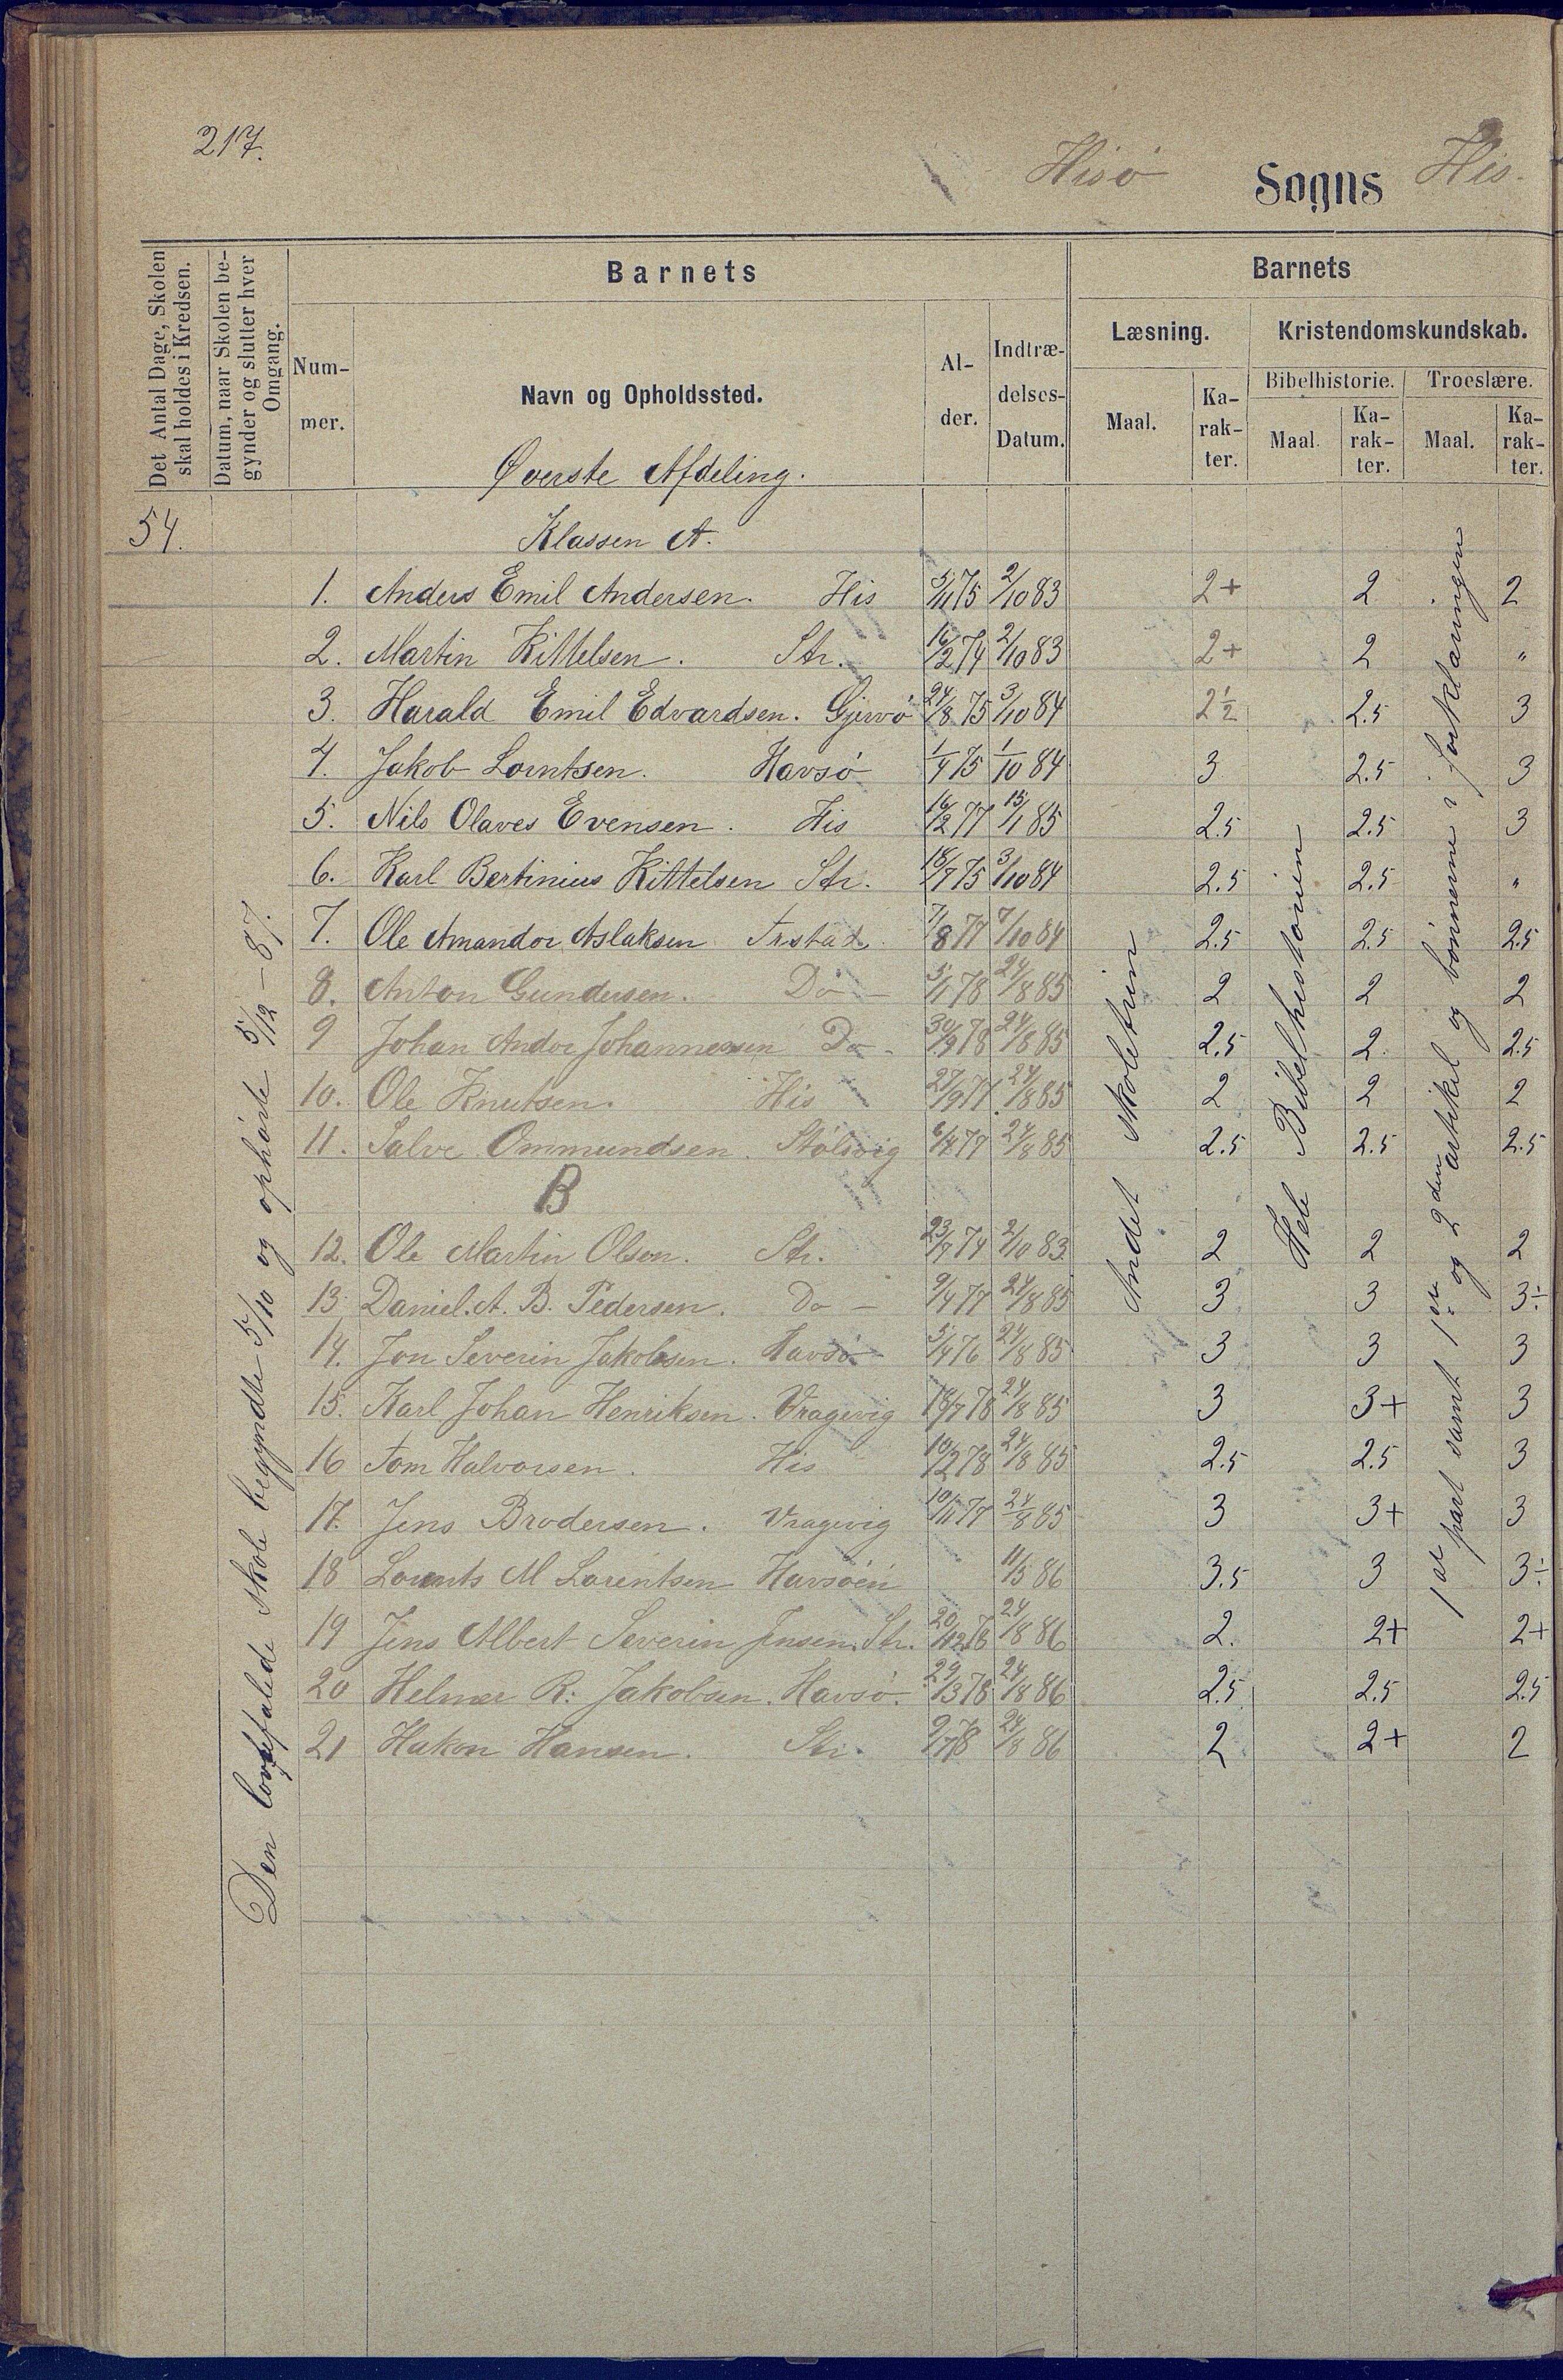 217.
Hisö Sogns His
Det Antal Dage, Skolen skal holdes i Kredsen.
Datum, naar Skolen begynder og slutter hver Omgang.
Barnets
Nummer.
Navn og Opholdssted.
Alder.
Indtrædelses-Datum.
Barnets
Læsning.
Maal.
Karakter.
Kristendomskundskab.
Bibelhistorie.
Maal.
Karakter.
Troeslære.
Maal.
Karakter.
Øverste Afdeling.
54. Klassen A.
1. Anders Emil Andersen. His 5/11 75 2/10 83 2+ 2 2
2. Martin Kittelsen. Str. 16/2 74 2/10 83 2+ 2 "
3. Harald Emil Edvardsen. Gjervö 24/8 75 3/10 84 2½ 2.5 3
4. Jakob Lorntsen. Havsö 1/4 75 1/10 84 3 2.5 3
5. Nils Olaves Evensen. His 16/12 77 15/1 85 2.5 2.5 3
6. Karl Bertinius Kittelsen Str. 18/7 75 3/10 84 2.5 2.5 "
7. Ole Amandor Aslaksen Arstad. 7/8 77 7/10 84 2.5 2.5 2.5
8. Anton Gundersen. Do - 5/1 78 24/8 85 2 2 2
9 Johan Andor Johannessen Do - 30/9 78 24/8 85 2.5 2. 2.5
10. Ole Knutsen. His 27/9 77 24/8 85 2 2 2
11. Salve Ommundsen Stölsvig 6/4 77 24/8 85 2.5 2.5 2.5
B
12. Ole Martin Olsen. Str. 23/7 74 2/10 83 2 2 2
13. Daniel. A. B. Pedersen. Do - 9/4 77 24/8 85 3 3 3÷
14. Jon Severin Jakobsen. Havsö 5/4 76 24/8 85 3 3 3
15. Karl Johan Henriksen. Vragevig 18/7 78 24/8 85 3 3+ 3
16 Tom Halvorsen. His 10/2 78 24/8 85 2.5 2.5 3
17. Jens Brodersen. Vragevig 10/11 77 24/8 85 3 3+ 3
18 Lornts M Lorentsen Havsöen 11/5 86 3.5 3 3÷
19 Jens Albert Severin Jensen. Str. 20/12 78 24/8 86 2. 2+ 2+
20 Helmer R: Jakobsen. Havsö. 29/3 78 24/8 86 2.5 2.5 2.5
21 Hakon Hansen. Str. 9/7 78 24/8 86 2 2+ 2
Den lovbefalede skole begyndte 5/10 og ophörte 5/12 - 87.
Andet skoletrin
Hele Bibelhistorien
1ste part samt 1ste og 2den artikel og bönnerne i forklaringen